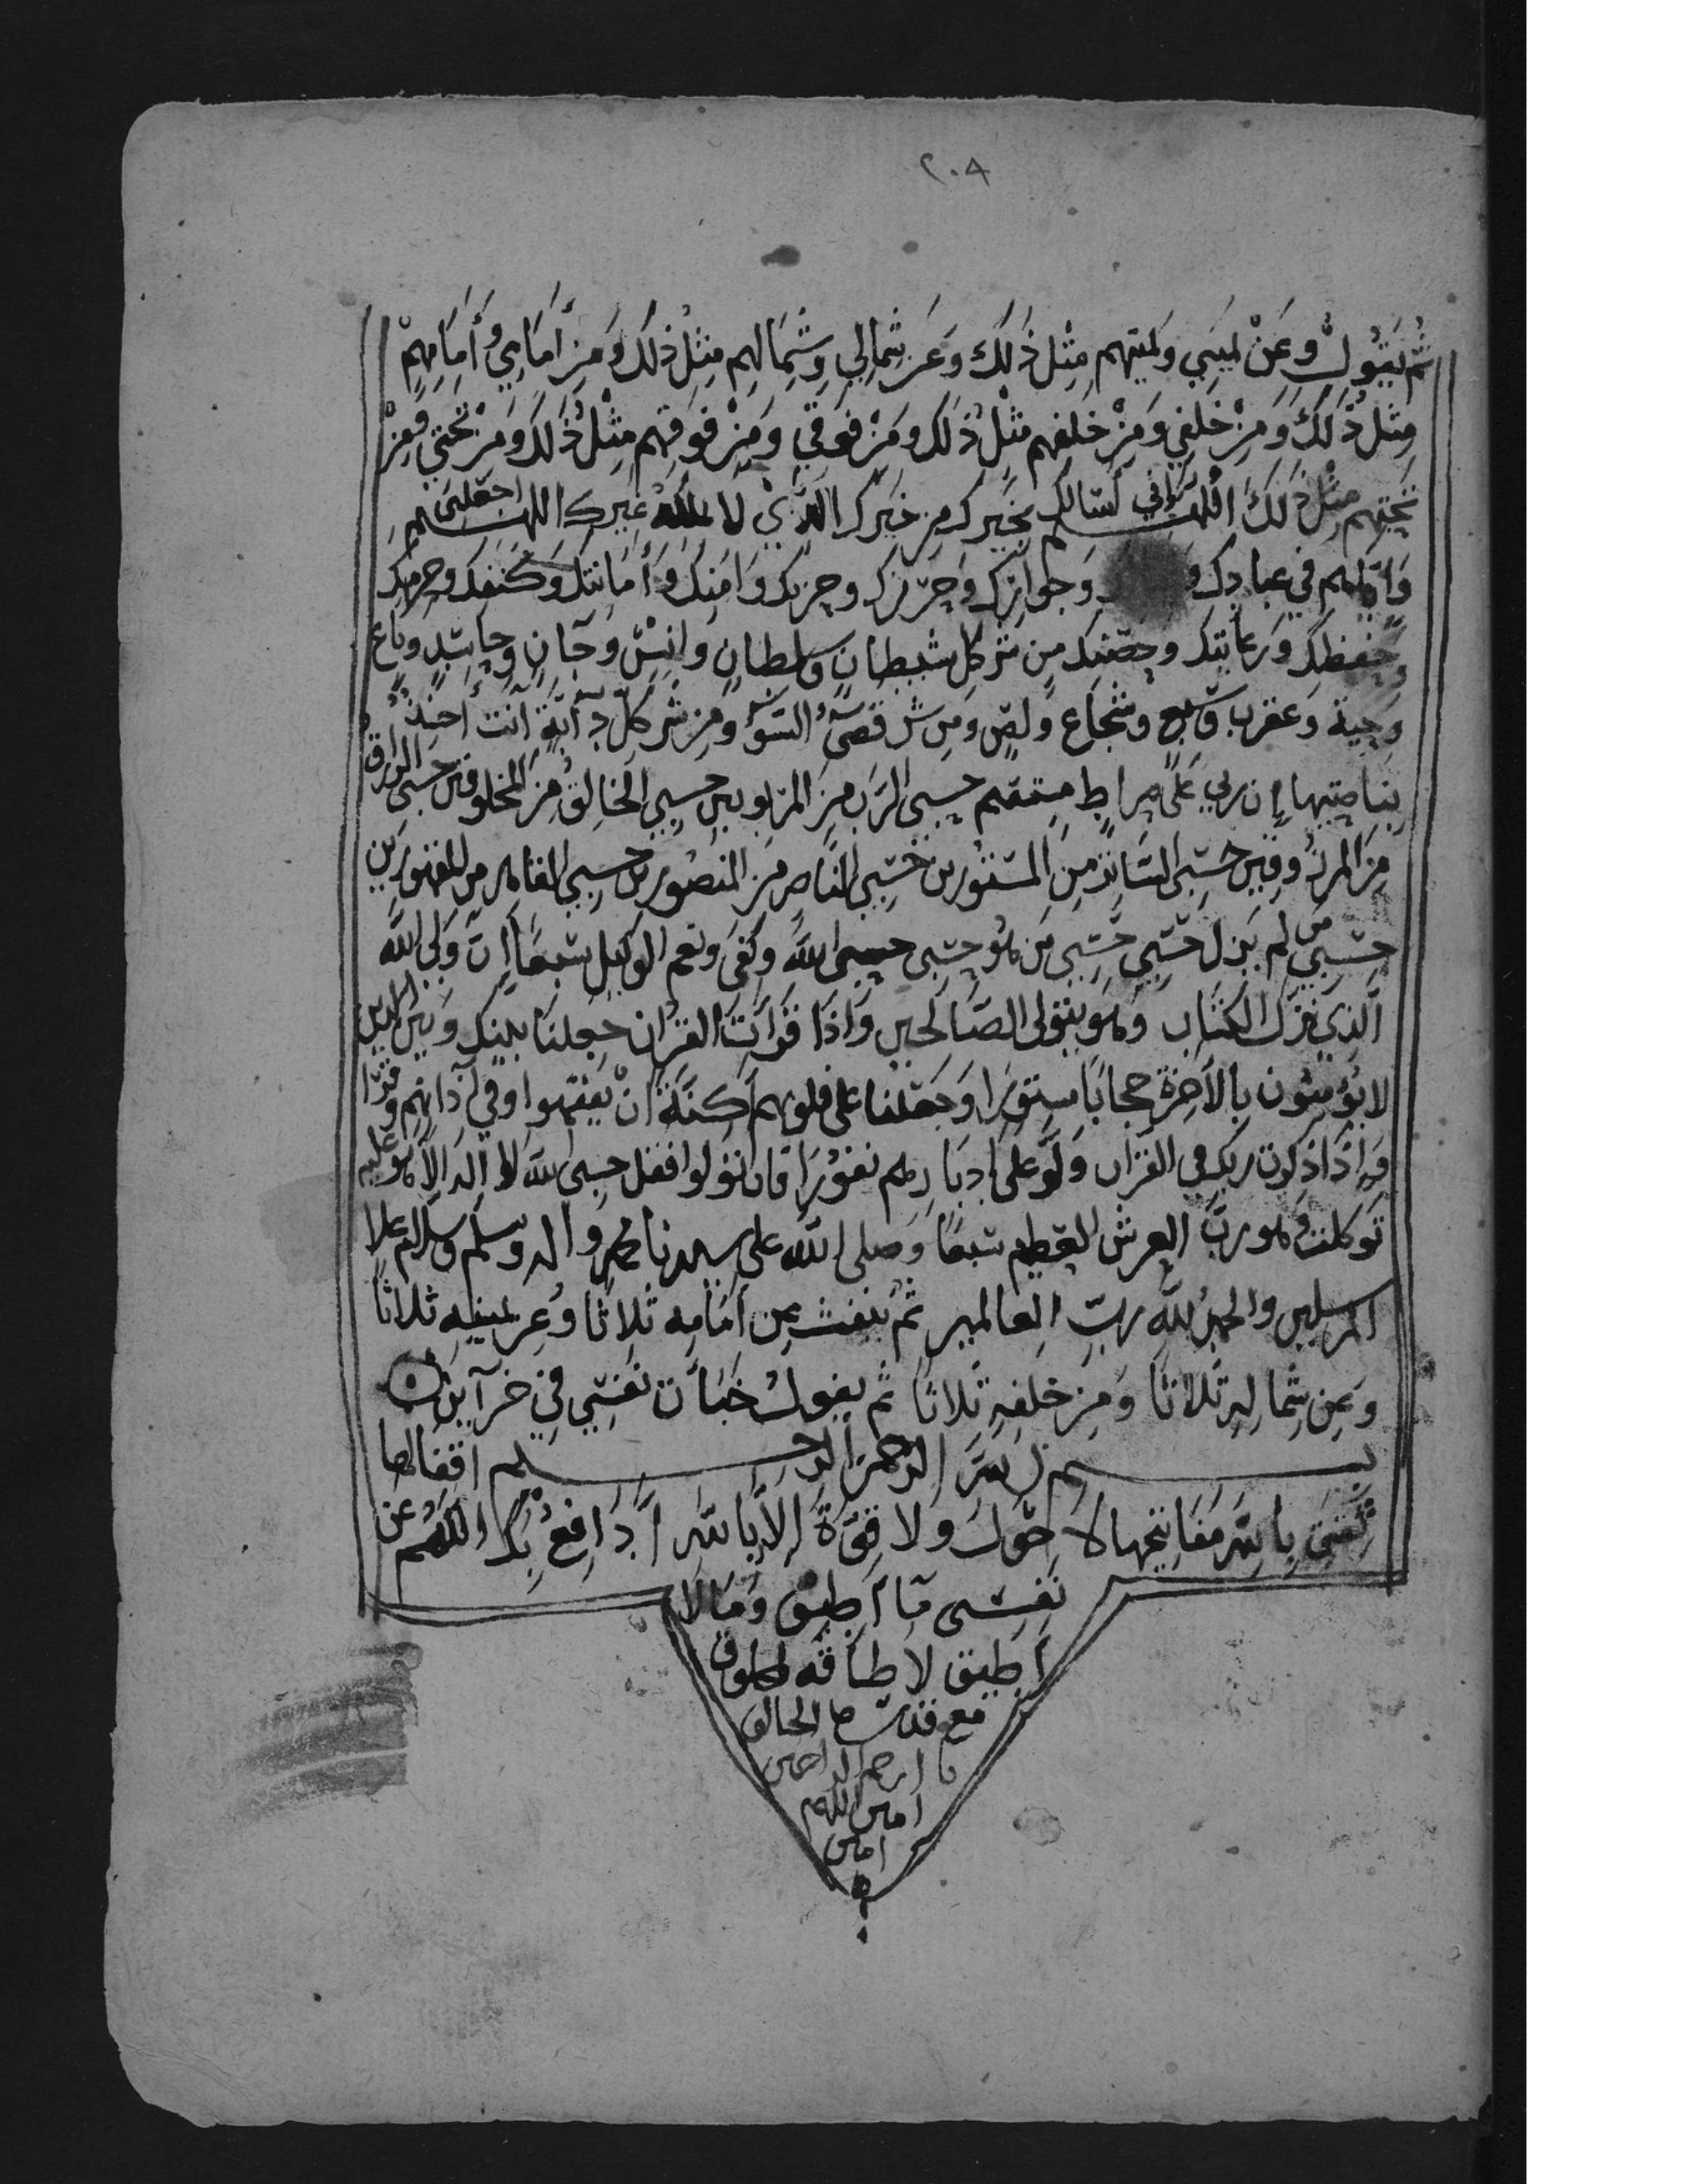 ٢٠٨
ثُمَّ يَقُولُ وعَنْ يَميني وَيمينهم مِثْل ذَلكَ وعَن شِمالِي وشِمَالهِم مِثْل ذلك وَمِن أمَامِي وأَمَامِهِمْ
مِثْل ذَلكَ وَمِنْ خَلْفي وَمِنْ خلفهم مثْل ذلك ومِنْ فوقي ومِنْ فوقهم مِثْل ذَلك ومِنْ تحتي ومِنْ
تحتهم مِثْل ذَلكَ اللهم إني أسالك بخيرك من خيرك الذي لا يملكه غيرك اللهم اجعلني
وَإيّاهم في عبادك وَجوارك وحرزك وحزبك وَامنك وأمَانتك وكَنَفك وحرمك
وحفظك ورعايتك وحصنك من شر كل شيطان وسلطان وانس وجان وحاسد وباغ
وحية وعقرب وسبع وشجاع ولص ومن شر قضَاء السّوْء ومن شر كل دآبة أنت آخذ
بناصيتها إن ربي على صراط مستقيم حسبي الرب من المربوبين حسبي الخالق من المخلوقين حسبي الرازق
مِن المرزُوقين حسبي السّاتر من المستورين حسبي الناصر من المنصورين حسبي القاهر من المقهورين
حسبي من لم يزل حسبي حسبي من هو حسبي حسبي الله وكفى ونعم الوكيل سبعًا إنّ وليّ الله
الذي نزل الكتاب وهو يتولى الصّالحين وَإذا قرأتَ القرْان جعلنا بينك وَبين الذين
لا يؤمنون بالآخرة حجابًا مستورًا وَجعَلنا على قلوبهم أكنّة انْ يفقهوه وفي آذانهم وقرًا
وإذا ذكرت ربك في القرآن ولّوْ على ادبارهم نفورًا فان تولوا فقل حسبي الله لا اله الا هو عليه
توكلت وهو ربّ العرش العظيم سبعًا وصلى الله على سيدنا محمد واله وسلم وسلام على
المرسلين والحمد لله ربّ العالمين ثم ينفث من أمَامه ثلاثا وعن يمينه ثلاثًا
وعن شماله ثلاثا وَمِن خلفه ثلاثًا ثم يقول خبأت نفسي في خزآين
بسم الله الرّحمن الرّحيم اقفالها
ثقتي بالله مفاتيحها لا حول ولا قوّة إلا بالله أدافعُ بك اللهُم عن
نفسي مَا أطيق وَما لا
أطيق لا طاقة لمخلوق
مع قدرة الخالق
يا ارحم الراحمين
امين اللهم
امين